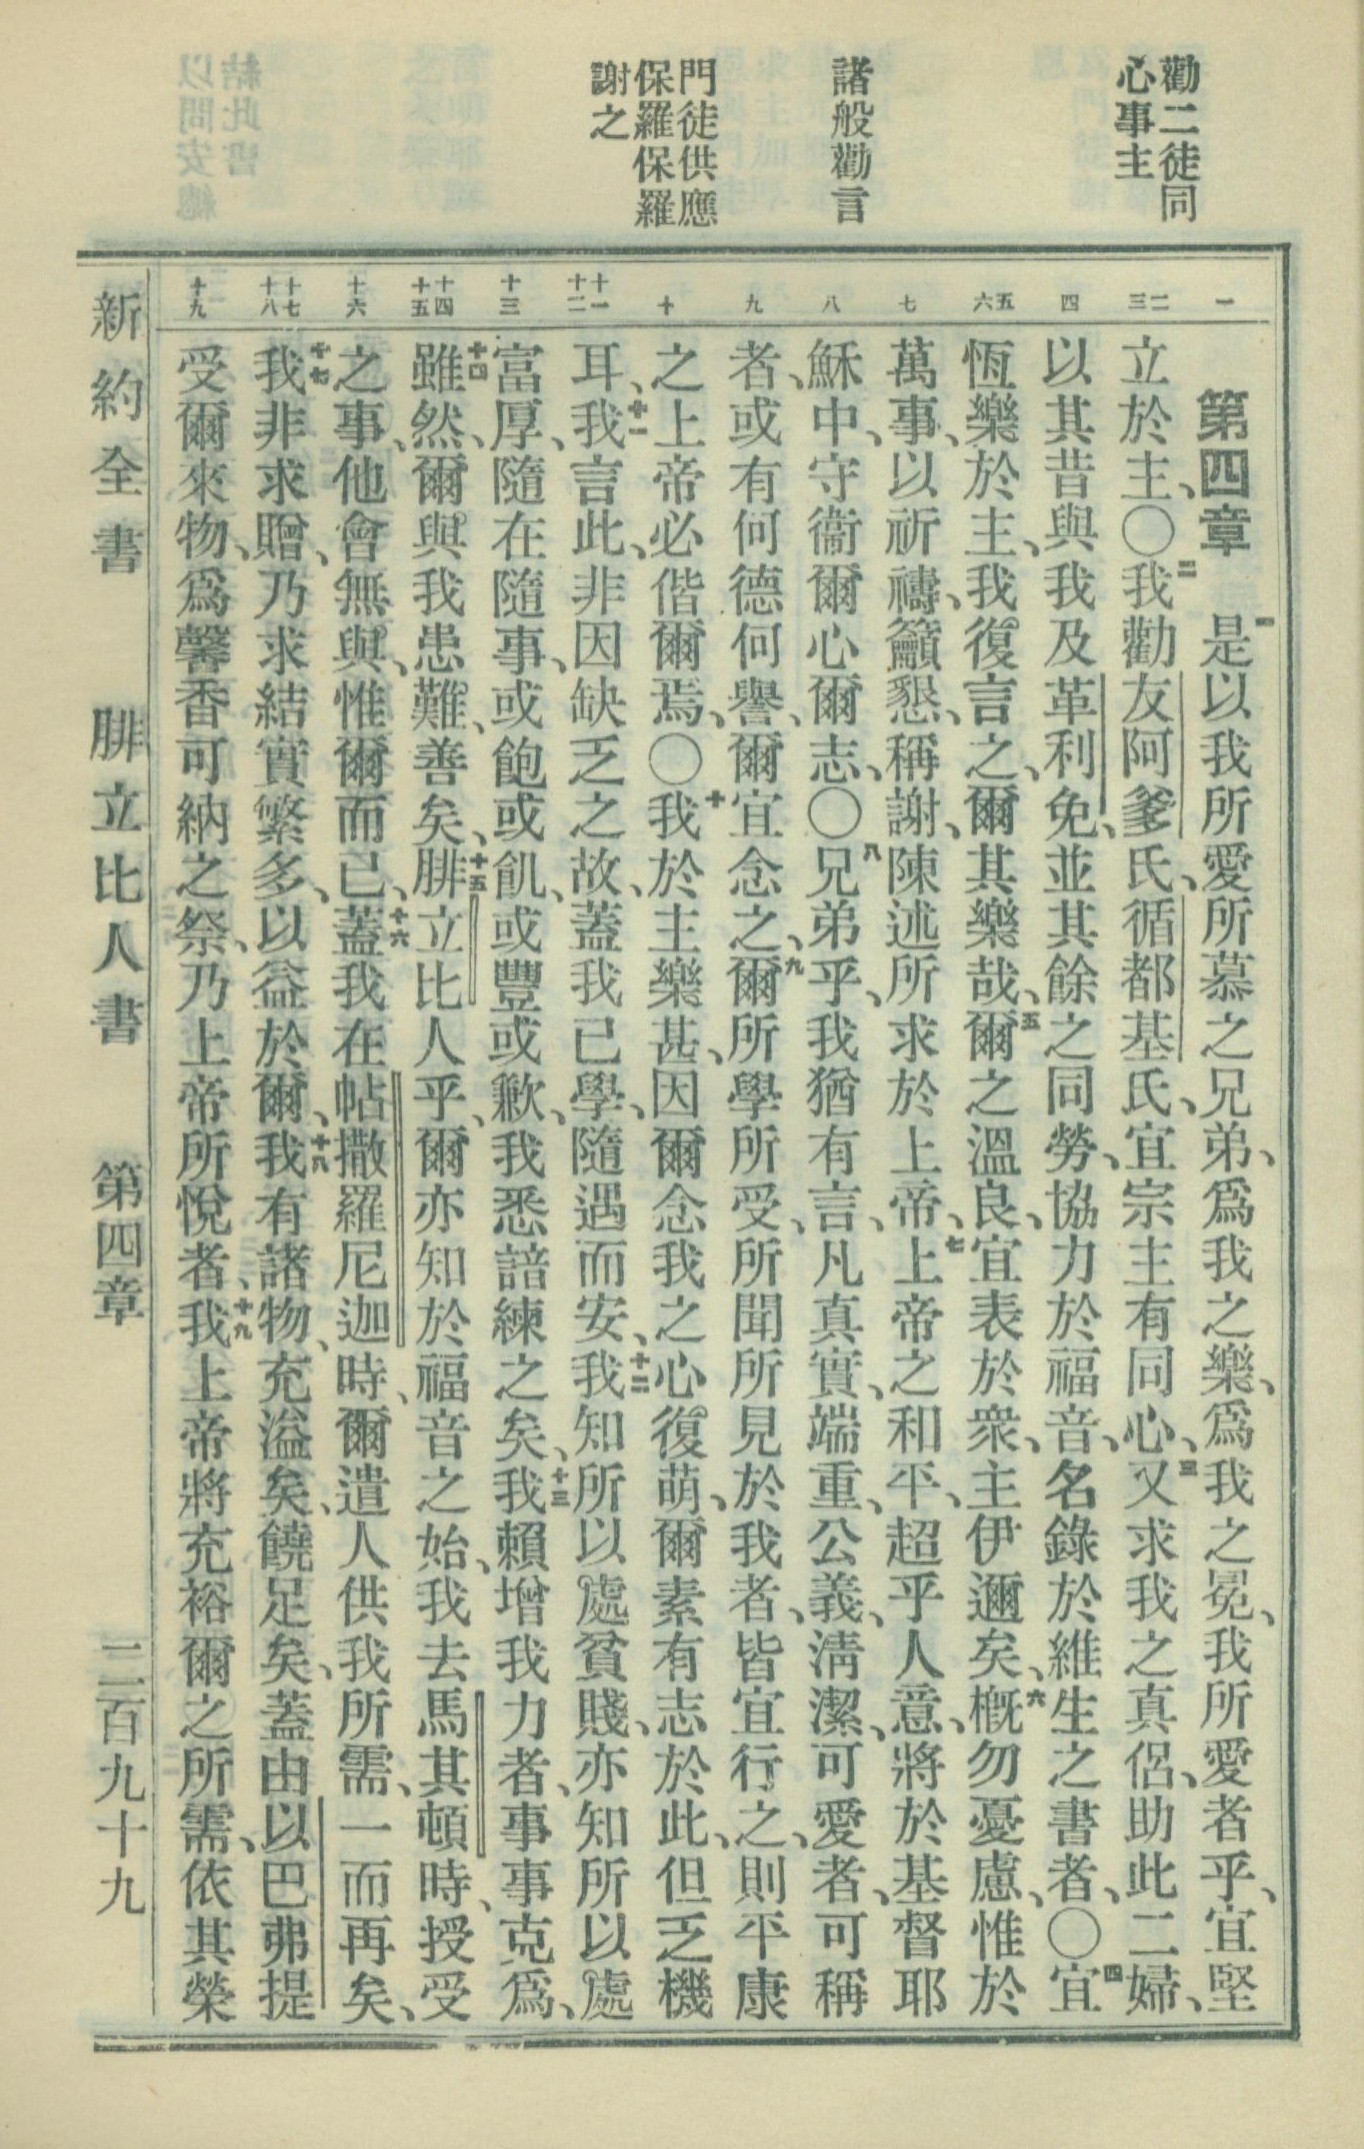 勸二徒同
心事主
諸般勸言
門徒供應
保羅保羅
謝之
一
二三
四
五六
七
八
九
十
十一十二
十三
十四十五
十六
十七十八
十九
第四章 一是以我所愛所慕之兄弟、爲我之樂、爲我之冕、我所愛者乎、宜堅
立於主、〇二我勸友阿爹氏、循都基氏、宜宗主有同心、三又求我之真侶、助此二婦、
以其昔與我及革利免、並其餘之同勞、協力於福音、名錄於維生之書者、〇四宜
恆樂於主、我復言之、爾其樂哉、五爾之溫良、宜表於衆、主伊邇矣、六概勿憂慮、惟於
萬事、以祈禱、籲懇、稱謝、陳述所求於上帝、七上帝之和平、超乎人意、將於基督耶
穌中、守衞爾心爾志、〇八兄弟乎、我猶有言、凡真實、端重、公義、淸潔、可愛者、可稱
者、或有何德何譽、爾宜念之、九爾所學所受、所聞所見於我者、皆宜行之、則平康
之上帝必偕爾焉、〇十我於主樂甚、因爾念我之心復萌、爾素有志於此、但乏機
耳、十一我言此、非因缺乏之故、蓋我已學、隨遇而安、十二我知所以處貧賤、亦知所以處
富厚、隨在隨事、或飽或飢、或豐或歉、我悉諳練之矣、十三我賴增我力者、事事克爲、
十四雖然、爾與我患難、善矣、十五腓立比人乎、爾亦知於福音之始、我去馬其頓時、授受
之事、他會無與、惟爾而已、十六蓋我在帖撒羅尼迦時、爾遣人供我所需、一而再矣、
十七我非求贈、乃求結實繁多、以益於爾、十八我有諸物、充溢矣、饒足矣、蓋由以巴弗提
受爾來物、爲馨香可納之祭、乃上帝所悅者、十九我上帝將充裕爾之所需、依其榮
新約全書 腓立比人書 第四章 二百九十九